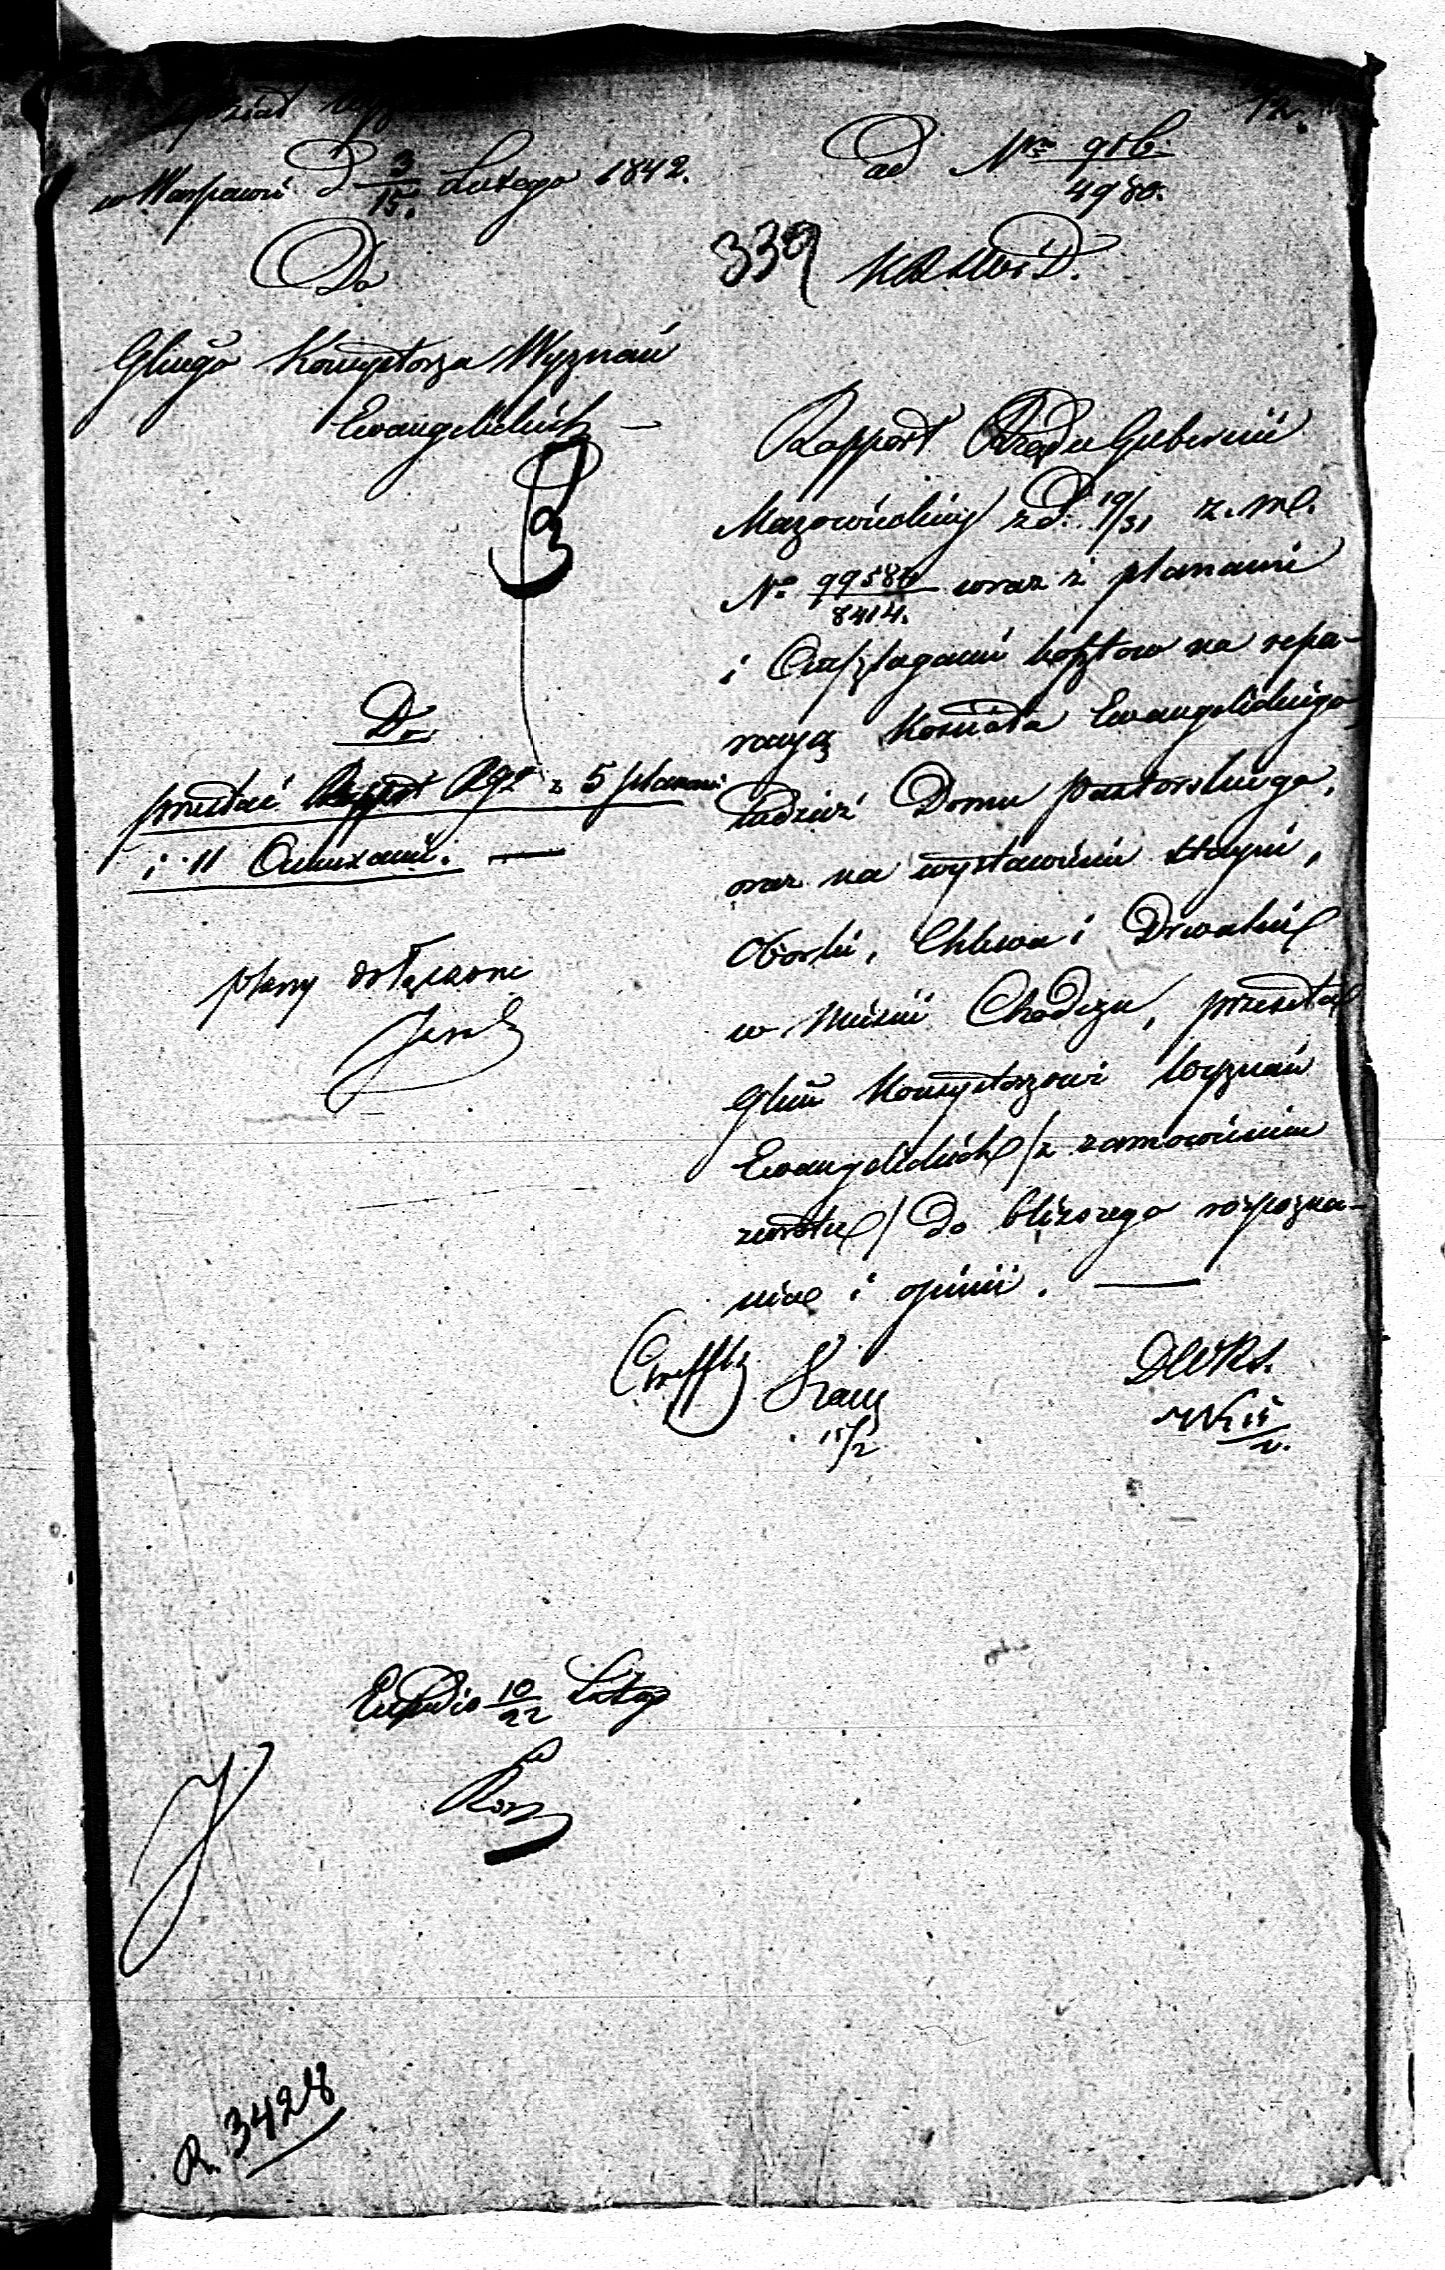 w Warszawie D 3/15. Lutego 1842.
ad Nro 916.
4980.
Do
339
KRSWiD.
Głnego Konsystorza Wyznań
Ewangelickich —
Rapport Rządu Gubernii
Mazowieckiej z d. 19/31 z. m.
No 99586/8414. wraz z planami
i Anszlagami kosztow na repa-
racyą Kościoła Ewangelickiego
tudzież Domu Pastorskiego,
oraz na wystawienie stayni,
Oborki, Chlewa i Drwalni
w Mieście Chodczu, przesyła
Głnu Konsystorzowi Wyznań
Ewangelickich /z zamowieniem
zwrotu/ do bliższego rozpozna-
nia i opinii. —
Do
przesłać Rapport Rgu z 5 planami
i 11 Annexami. —
plany dołączone
15/2
Exped 10/22 Lutego
R. 3428